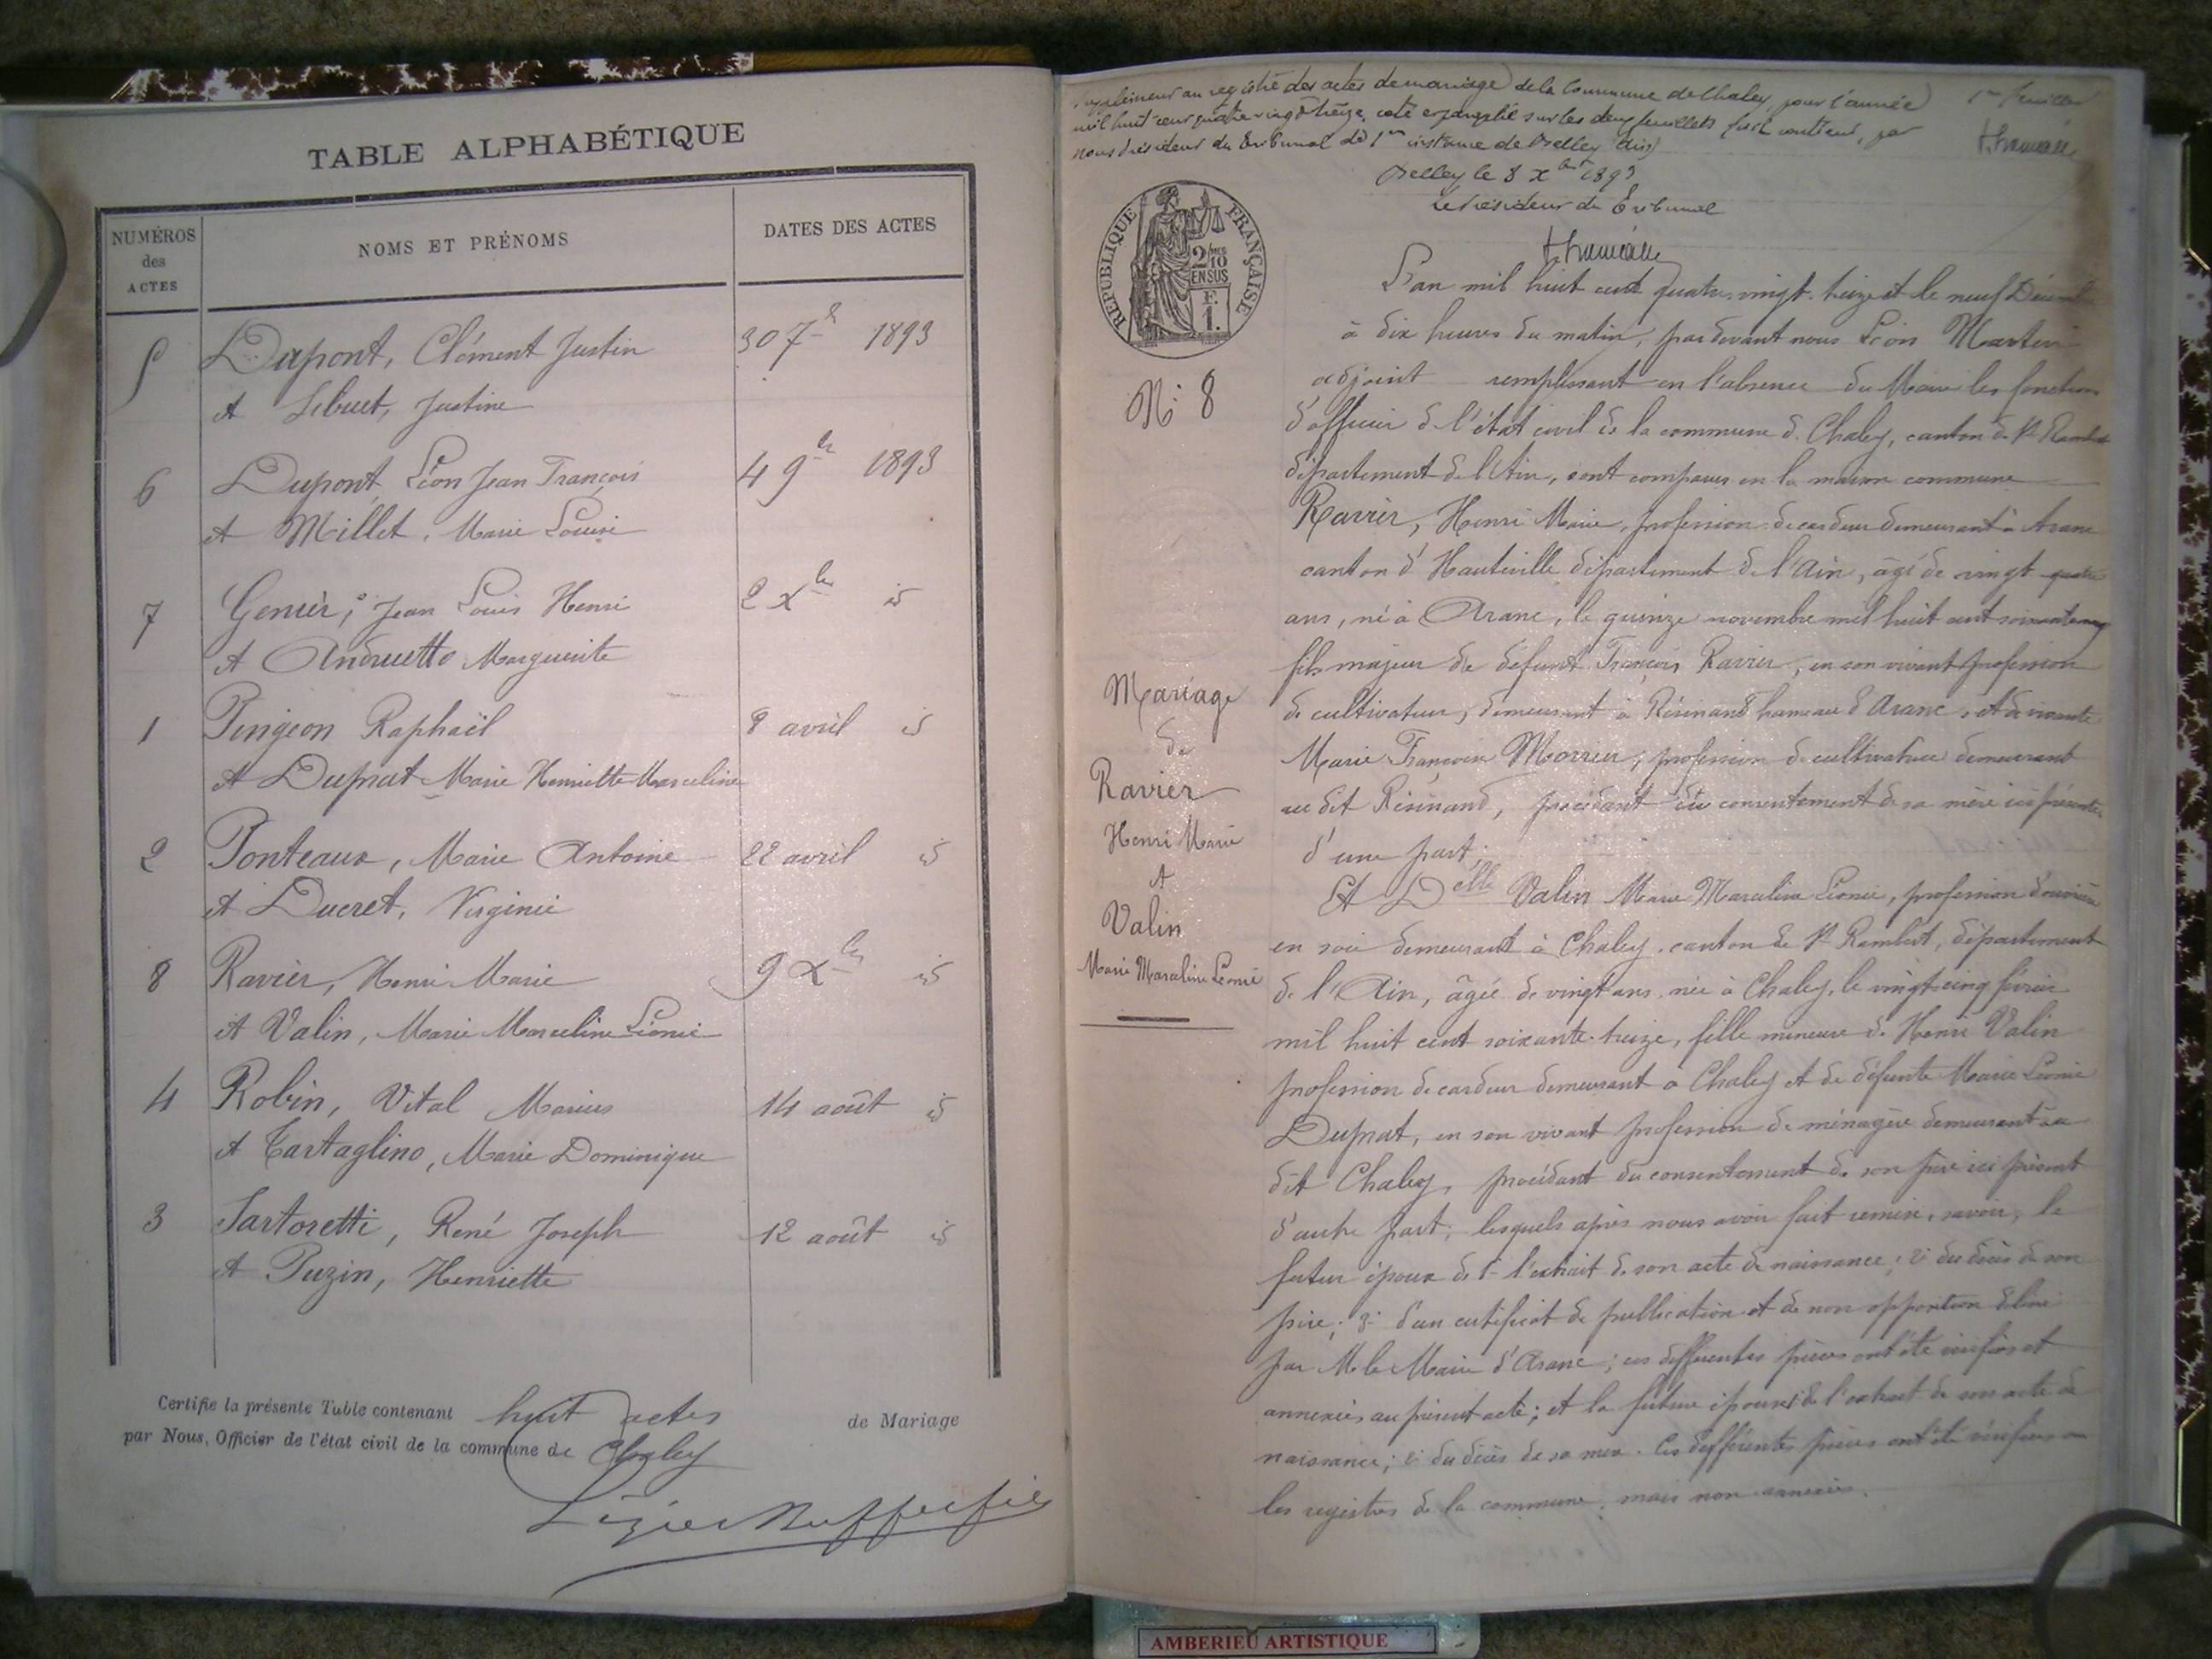 TABLE ALPHABÉTIQUE
NUMÉROS des ACTES
NOMS ET PRÉNOMS
DATES DES ACTES
5 Dupont, Clément Justin 30 7 1893
et Lebuet, Justine
6 Dupont Léon Jean François 4 9bre 1893
et Millet, Marie Louise
7 Genier, Jean Louis Henri 2 Xbre id
et Andruetto Marguerite
1 Pingeon Raphaël 8 avril id
et Duprat Marie Henriette Marceline
2 Ponteaux, Marie Antoine 22 avril id
et Ducret, Virginie
8 Ravier, Henri Marie 9 Xbre id
et Valin, Marie Marceline Léonie
4 Robin, Vital Marius 14 août id
et Tartaglino, Marie Dominique
3 Sartoretti, René Joseph 12 août id
et Puzin, Henriette
Certifie la présente Table contenant huit actes de Mariage
par Nous, Officier de l'état civil de la commune de Chaley
au registre des actes de mariage de la Commune de Chaley, pour l'année
mil huit cent quatre vingt treize, coté et paraphé sur les deux feuillets contenu, par
nous président du Tribunal de 1re instance de Belley (Ain)
Belley le 8 Xbre 1893
Le Président du Tribunal
1er feuillet
RÉPUBLIQUE FRANÇAISE
2/10 EN SUS
F.
1.
N° 8
Mariage
de
Ravier
Henri Marie
et
Valin
Marie Marceline Léonie
L'an mil huit cent quatre-vingt-treize et le neuf Décembre
à dix heures du matin, pardevant nous Léon Martin
adjoint remplissant en l'absence du Maire les fonctions
d'officier de l'état civil de la commune de Chaley, canton de St Rambert
département de l'Ain, sont comparus en la maison commune
Ravier, Henri Marie, profession de cardeur demeurant à Aranc
canton d'Hauteville département de l'Ain, âgé de vingt-quatre
ans, né à Aranc, le quinze novembre mil huit cent soixante neuf
fils majeur de défunt François Ravier, en son vivant profession
de cultivateur, demeurant à Résinand hameau d'Aranc, et de vivante
Marie Françoise Morrier, profession de cultivatrice demeurant
au dit Résinand, procédant du consentement de sa mère ici présente
d'une part;
Et Delle Valin Marie Marceline Léonie, profession d'ouvrière
en soie demeurant à Chaley, canton de St Rambert, département
de l'Ain, âgée de vingt ans, née à Chaley, le vingt cinq février
mil huit cent soixante-treize, fille mineure de Henri Valin
profession de cardeur demeurant à Chaley et de défunte Marie Léonie
Duprat, en son vivant profession de ménagère demeurant au
dit Chaley, procédant du consentement de son père ici présent
d'autre part; lesquels après nous avoir fait remise, savoir, le
futur époux de 1° l'extrait de son acte de naissance; 2° du décès de son
père; 3° d'un certificat de publication et de non opposition délivré
par M. le Maire d'Aranc; ces différentes pièces ont été vérifiées et
annexées au présent acte; et la future épouse 1° de l'extrait de son acte de
naissance; 2° du décès de sa mère. Ces différentes pièces ont été vérifiées sur
les registres de la commune, mais non annexées.
AMBERIEU ARTISTIQUE